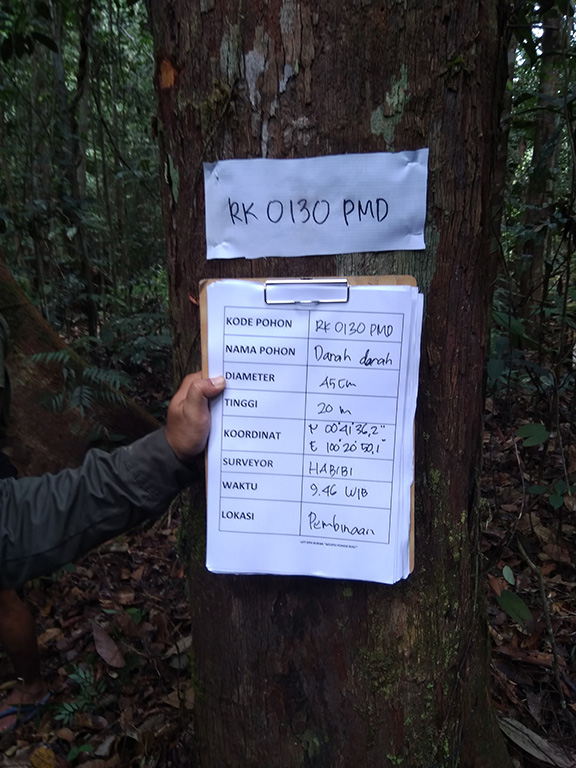 RK 0130 PMD
KODE POHON RK 0130 PMD
NAMA POHON Darah darah
DIAMETER 45 cm
TINGGI 20 m
KOORDINAT N 00°41'36,2"
E 100°20'50,1"
SURVEYOR HABIBI
WAKTU 9.46 WIB
LOKASI Pembinaan